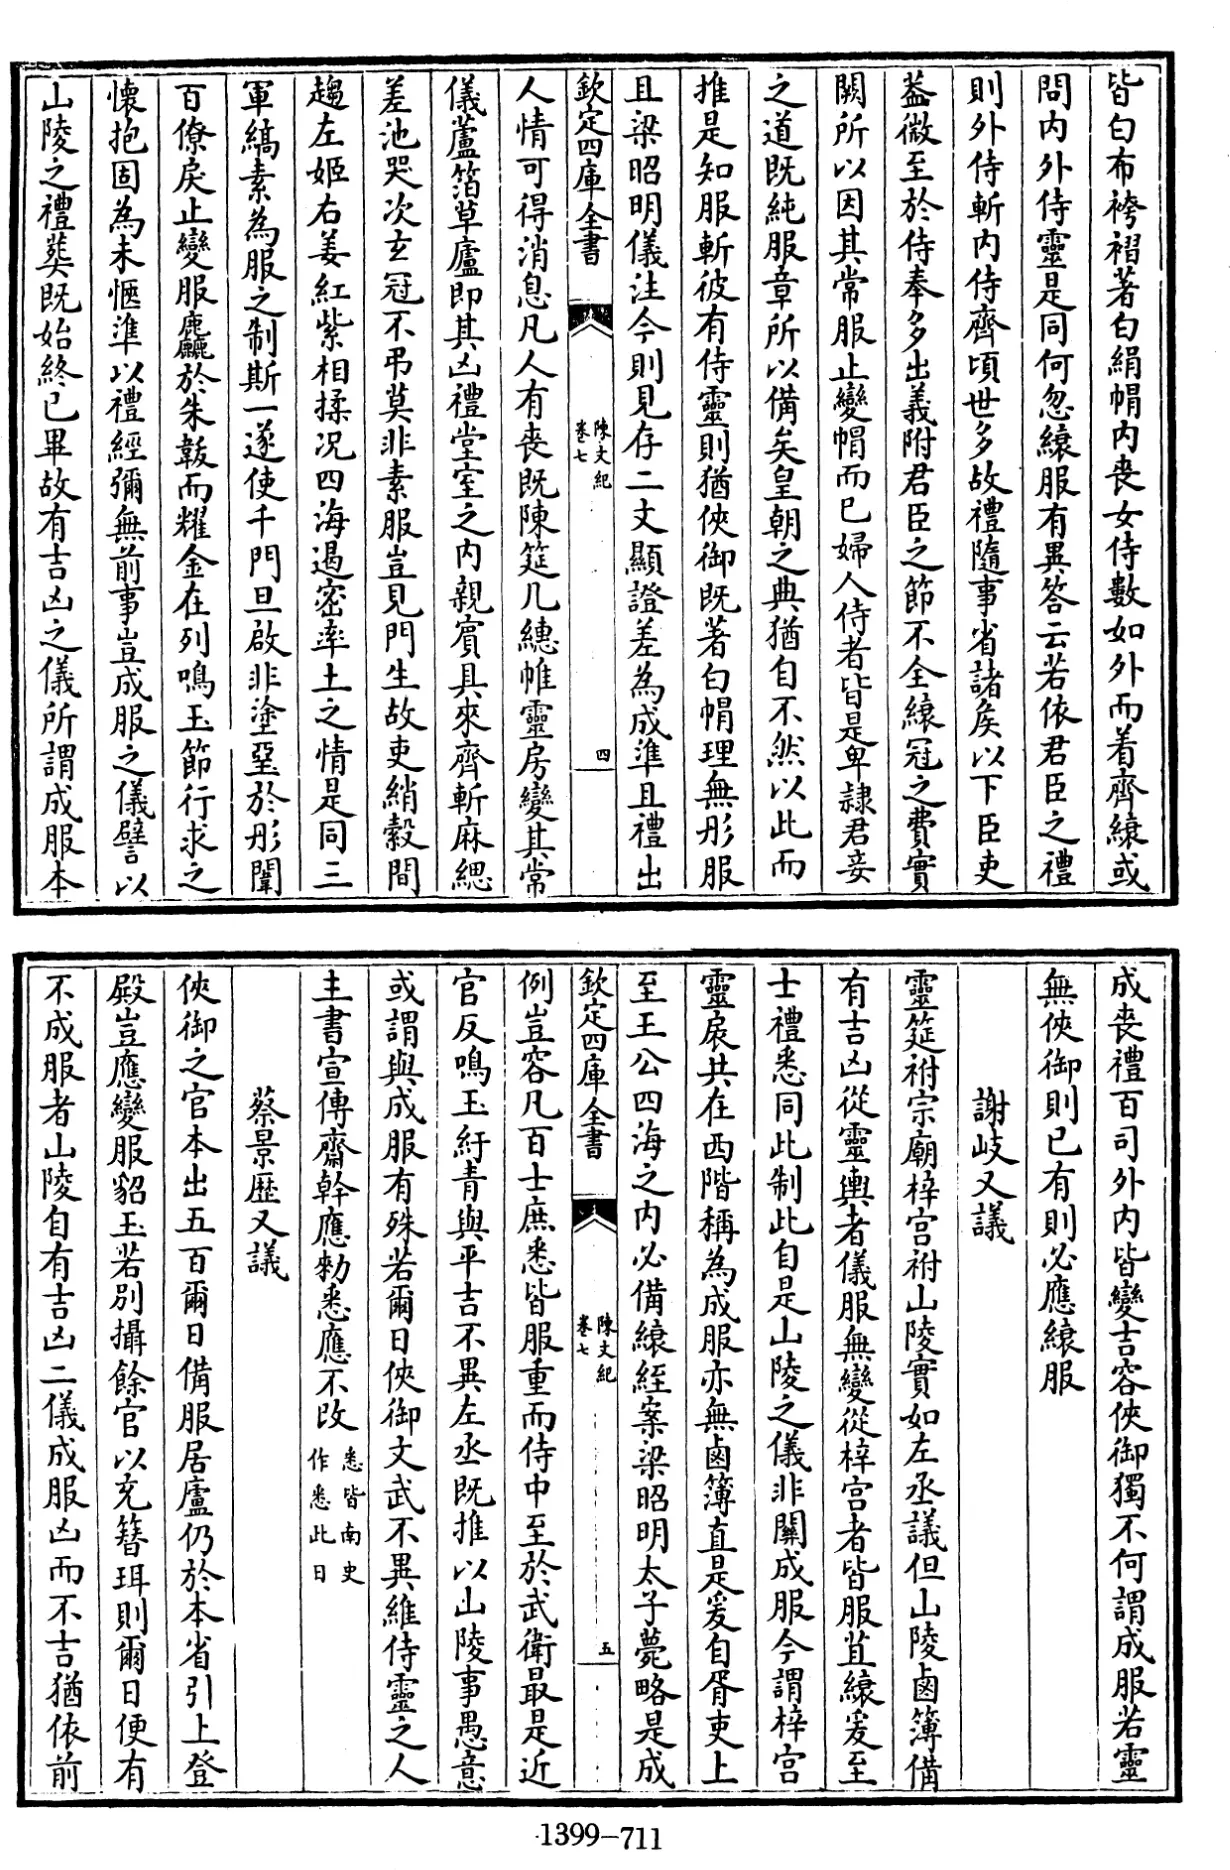 皆白布袴褶著白絹帽内喪女侍數如外而着齊縗或
問内外侍靈是同何忽縗服有異答云若依君臣之禮
則外侍斬内侍齊頃世多故禮隨事省諸矦以下臣吏
蓋微至於侍奉多出義附君臣之節不全縗冠之費實
闕所以因其常服止變帽而已婦人侍者皆是卑隷君妾
之道既純服章所以備矣皇朝之典猶自不然以此而
推是知服斬彼有侍靈則猶俠御既著白㡌理無彤服
且梁昭明儀注今則見存二文顯證差為成準且禮出
欽定四庫全書
陳文紀
卷七
四
人情可得消息凡人有喪既陳筵几繐帷靈房變其常
儀蘆箔草廬即其凶禮堂室之内親賓具來齊斬麻緦
差池哭次玄冠不弔莫非素服豈見門生故吏綃縠間
趨左姬右姜紅紫相揉况四海遏密率土之情是同三
軍縞素為服之制斯一遂使千門旦啟非塗堊於彤闈
百僚戾止變服麤於朱韍而耀金在列鳴玉節行求之
懷抱固為未愜準以禮經彌無前事豈成服之儀譬以
山陵之禮葬既始終已畢故有吉凶之儀所謂成服本
成喪禮百司外内皆變吉容俠御獨不何謂成服若靈
無俠御則已有則必應縗服
謝岐又議
靈筵祔宗廟梓宫祔山陵實如左丞議但山陵鹵簿備
有吉凶從靈輿者儀服無變從梓宫者皆服苴縗爰至
士禮悉同此制此自是山陵之儀非關成服今謂梓宫
靈扆共在西階稱為成服亦無鹵簿直是爰自胥吏上
至王公四海之内必備縗絰案梁昭明太子薨略是成
欽定四庫全書
陳文紀
卷七
五
例豈容凡百士庶悉皆服重而侍中至於武衛最是近
官反鳴玉紆青與平吉不異左丞既推以山陵事愚意
或謂與成服有殊若爾日俠御文武不異維侍靈之人
主書宣傳齋幹應勑悉應不改悉皆南史作悉此日
蔡景歴又議
俠御之官本出五百爾日備服居廬仍於本省引上登
殿豈應變服貂玉若别攝餘官以充簪珥則爾日便有
不成服者山陵自有吉凶二儀成服凶而不吉猶依前
1399-711